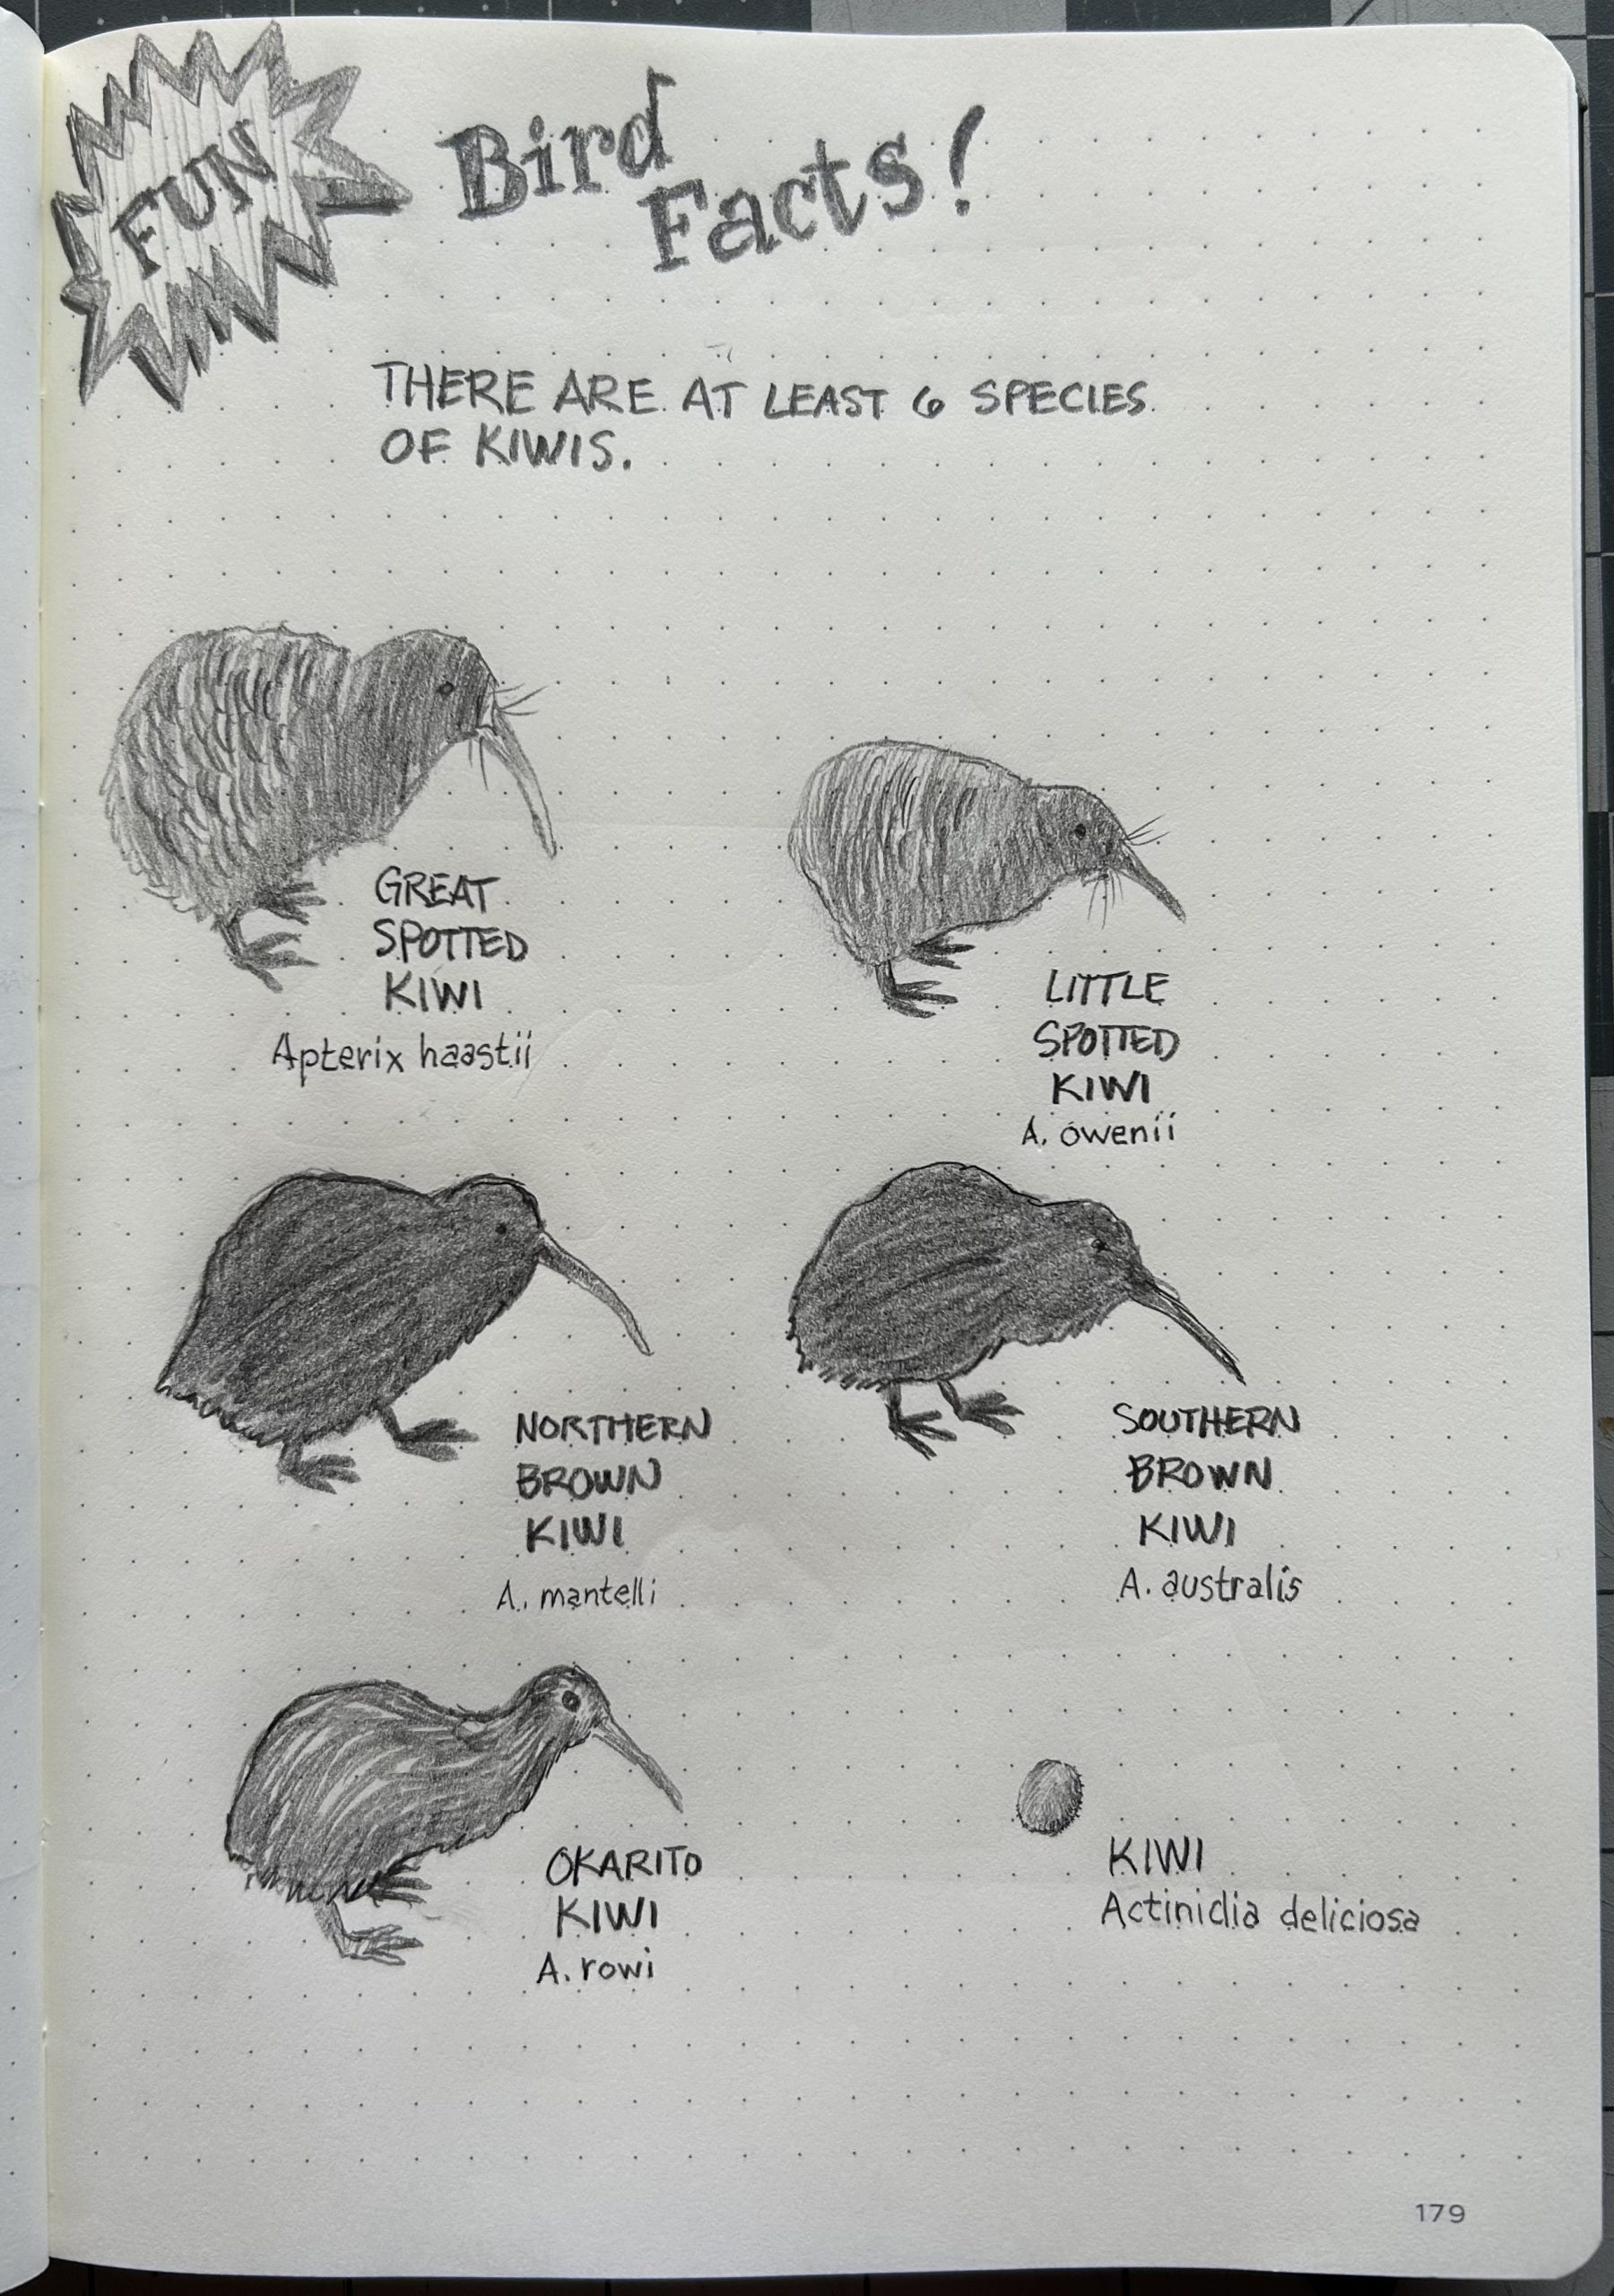 FUN
Bird
Facts!
THERE ARE AT LEAST 6 SPECIES
OF KIWIS.
GREAT
SPOTTED
KIWI
Apterix haastii
LITTLE
SPOTTED
KIWI
A. owenii
NORTHERN
BROWN
KIWI
A. mantelli
SOUTHERN
BROWN
KIWI
A. australis
OKARITO
KIWI
A. rowi
KIWI
Actinidia deliciosa
179